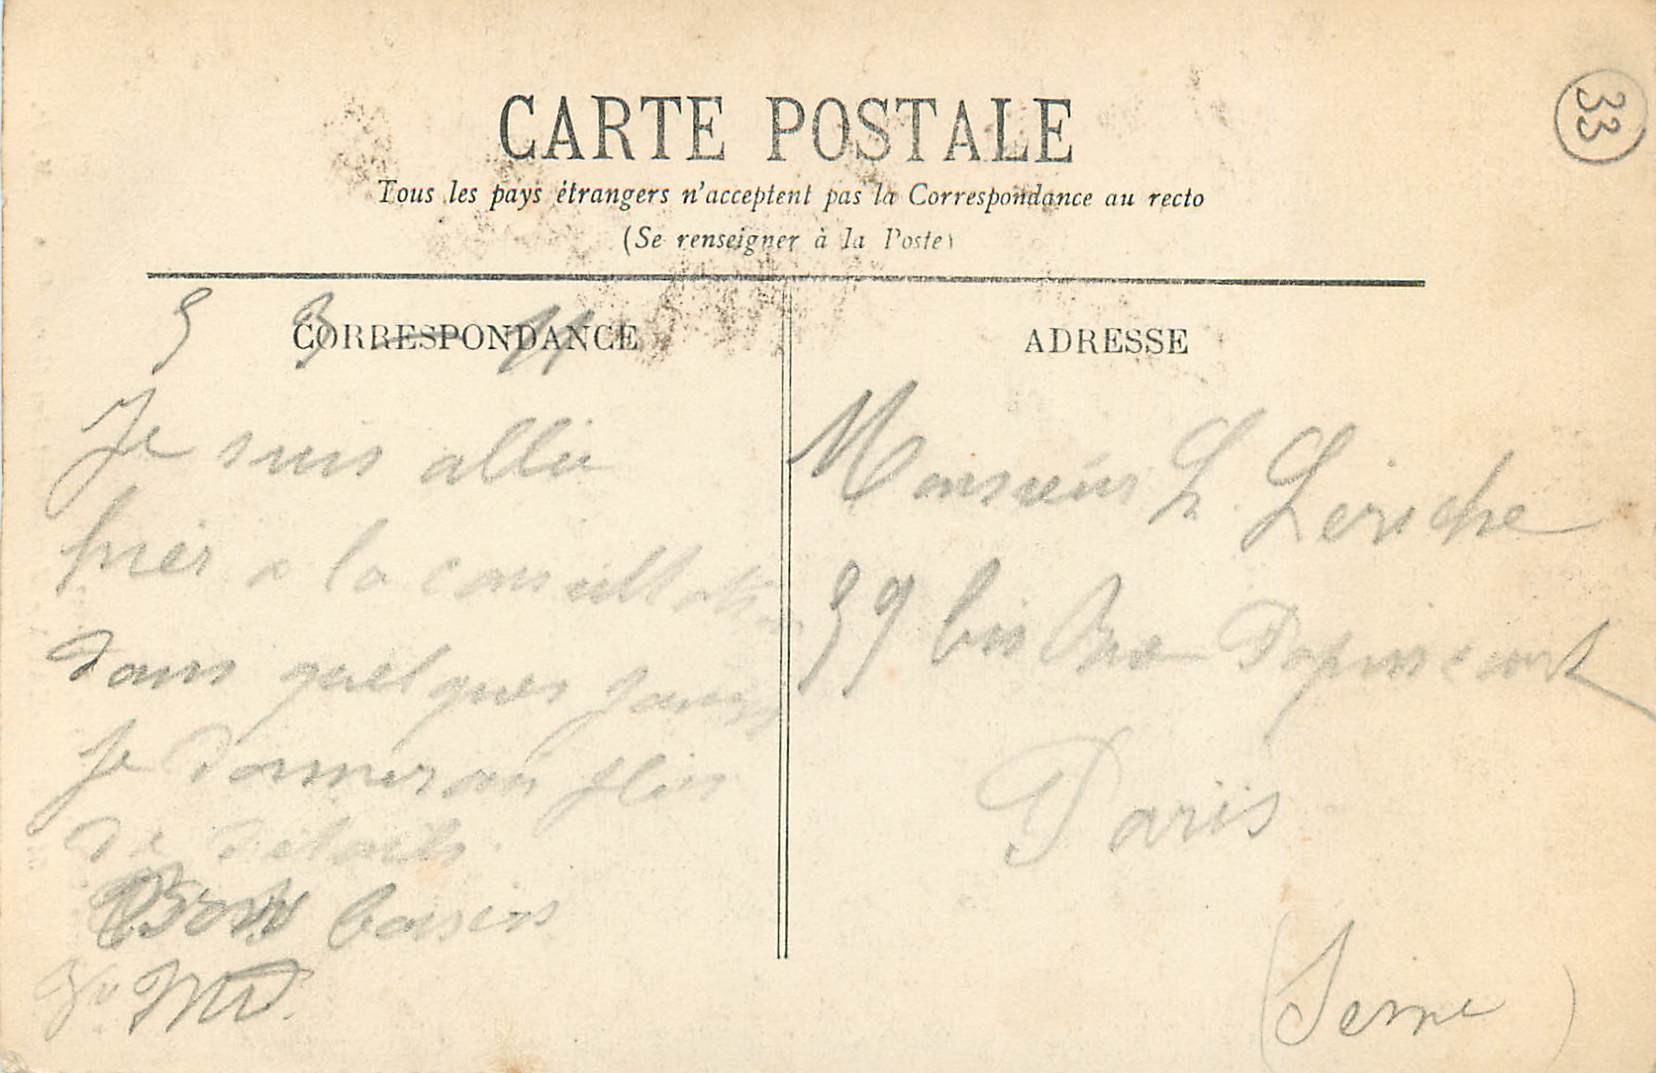 33
CARTE POSTALE
Tous les pays étrangers n'acceptent pas la Correspondance au recto
(Se renseigner à la Poste)
CORRESPONDANCE
Je suis allée
hier a la consultation
dans quelques jours
Je donnerai plus
de details
Bons baisers
ADRESSE
Monsieur L. Leriche
39 bis Rue Popincourt
Paris
(Seine)